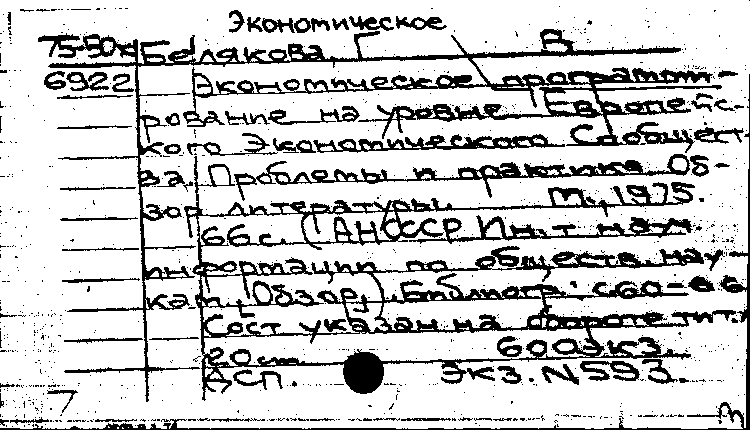 Экономическое
75-50к Белякова, Г В
6922 Экономическое программ-
рование на уровне Европейс-
кого Экономического Сообщест-
ва. Проблемы и практика. Об-
зор литературы. М., 1975.
66с. (АН СССР Ин-т науч.
информации по обществ. нау-
кам, Обзор). Библиогр: с.60-66
Сост указан на обороте тит.л
20см. 600экз.
ДСП. Экз. N593.